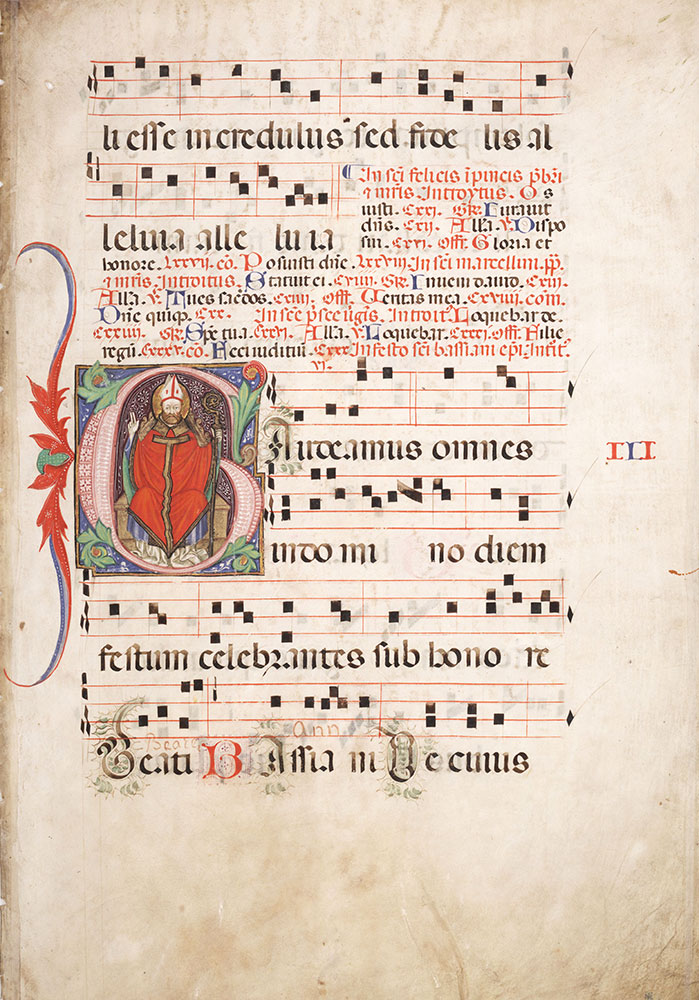 li esse incredulus sed fide lis al
leluia alle luia
In sci felicis ipincis pbri
& mris Introytus. Os
iusti. cxxi. Gr. Iuravit
dns. cxii. Alla. V. Dispo
sui. cxvi. Offr. Gloria et
honore. lxxxvii. co. Posuisti dne. lxxxviii. In sci marcellini. pp.
& mris. Introitus. Statuit ei. Gr. Inveni david. cxiii.
Alla. V. Tu es sacdos. cxiiii. Offr. Veritas mea. cxviiii. com.
Dne quinqz. cxx. In sce pisce ugis. Introit. Loquebar de.
Gr. Spe tua. Alla. V. Loquebar. Offr. Filie
regum. co. Feci iuditiu. In festo sci bassiani epi. Introit.
VI.
Gaudeamus omnes
III
in domi no diem
festum celebrantes sub hono re
Beata Ann
Beati B Assia ni De cuius